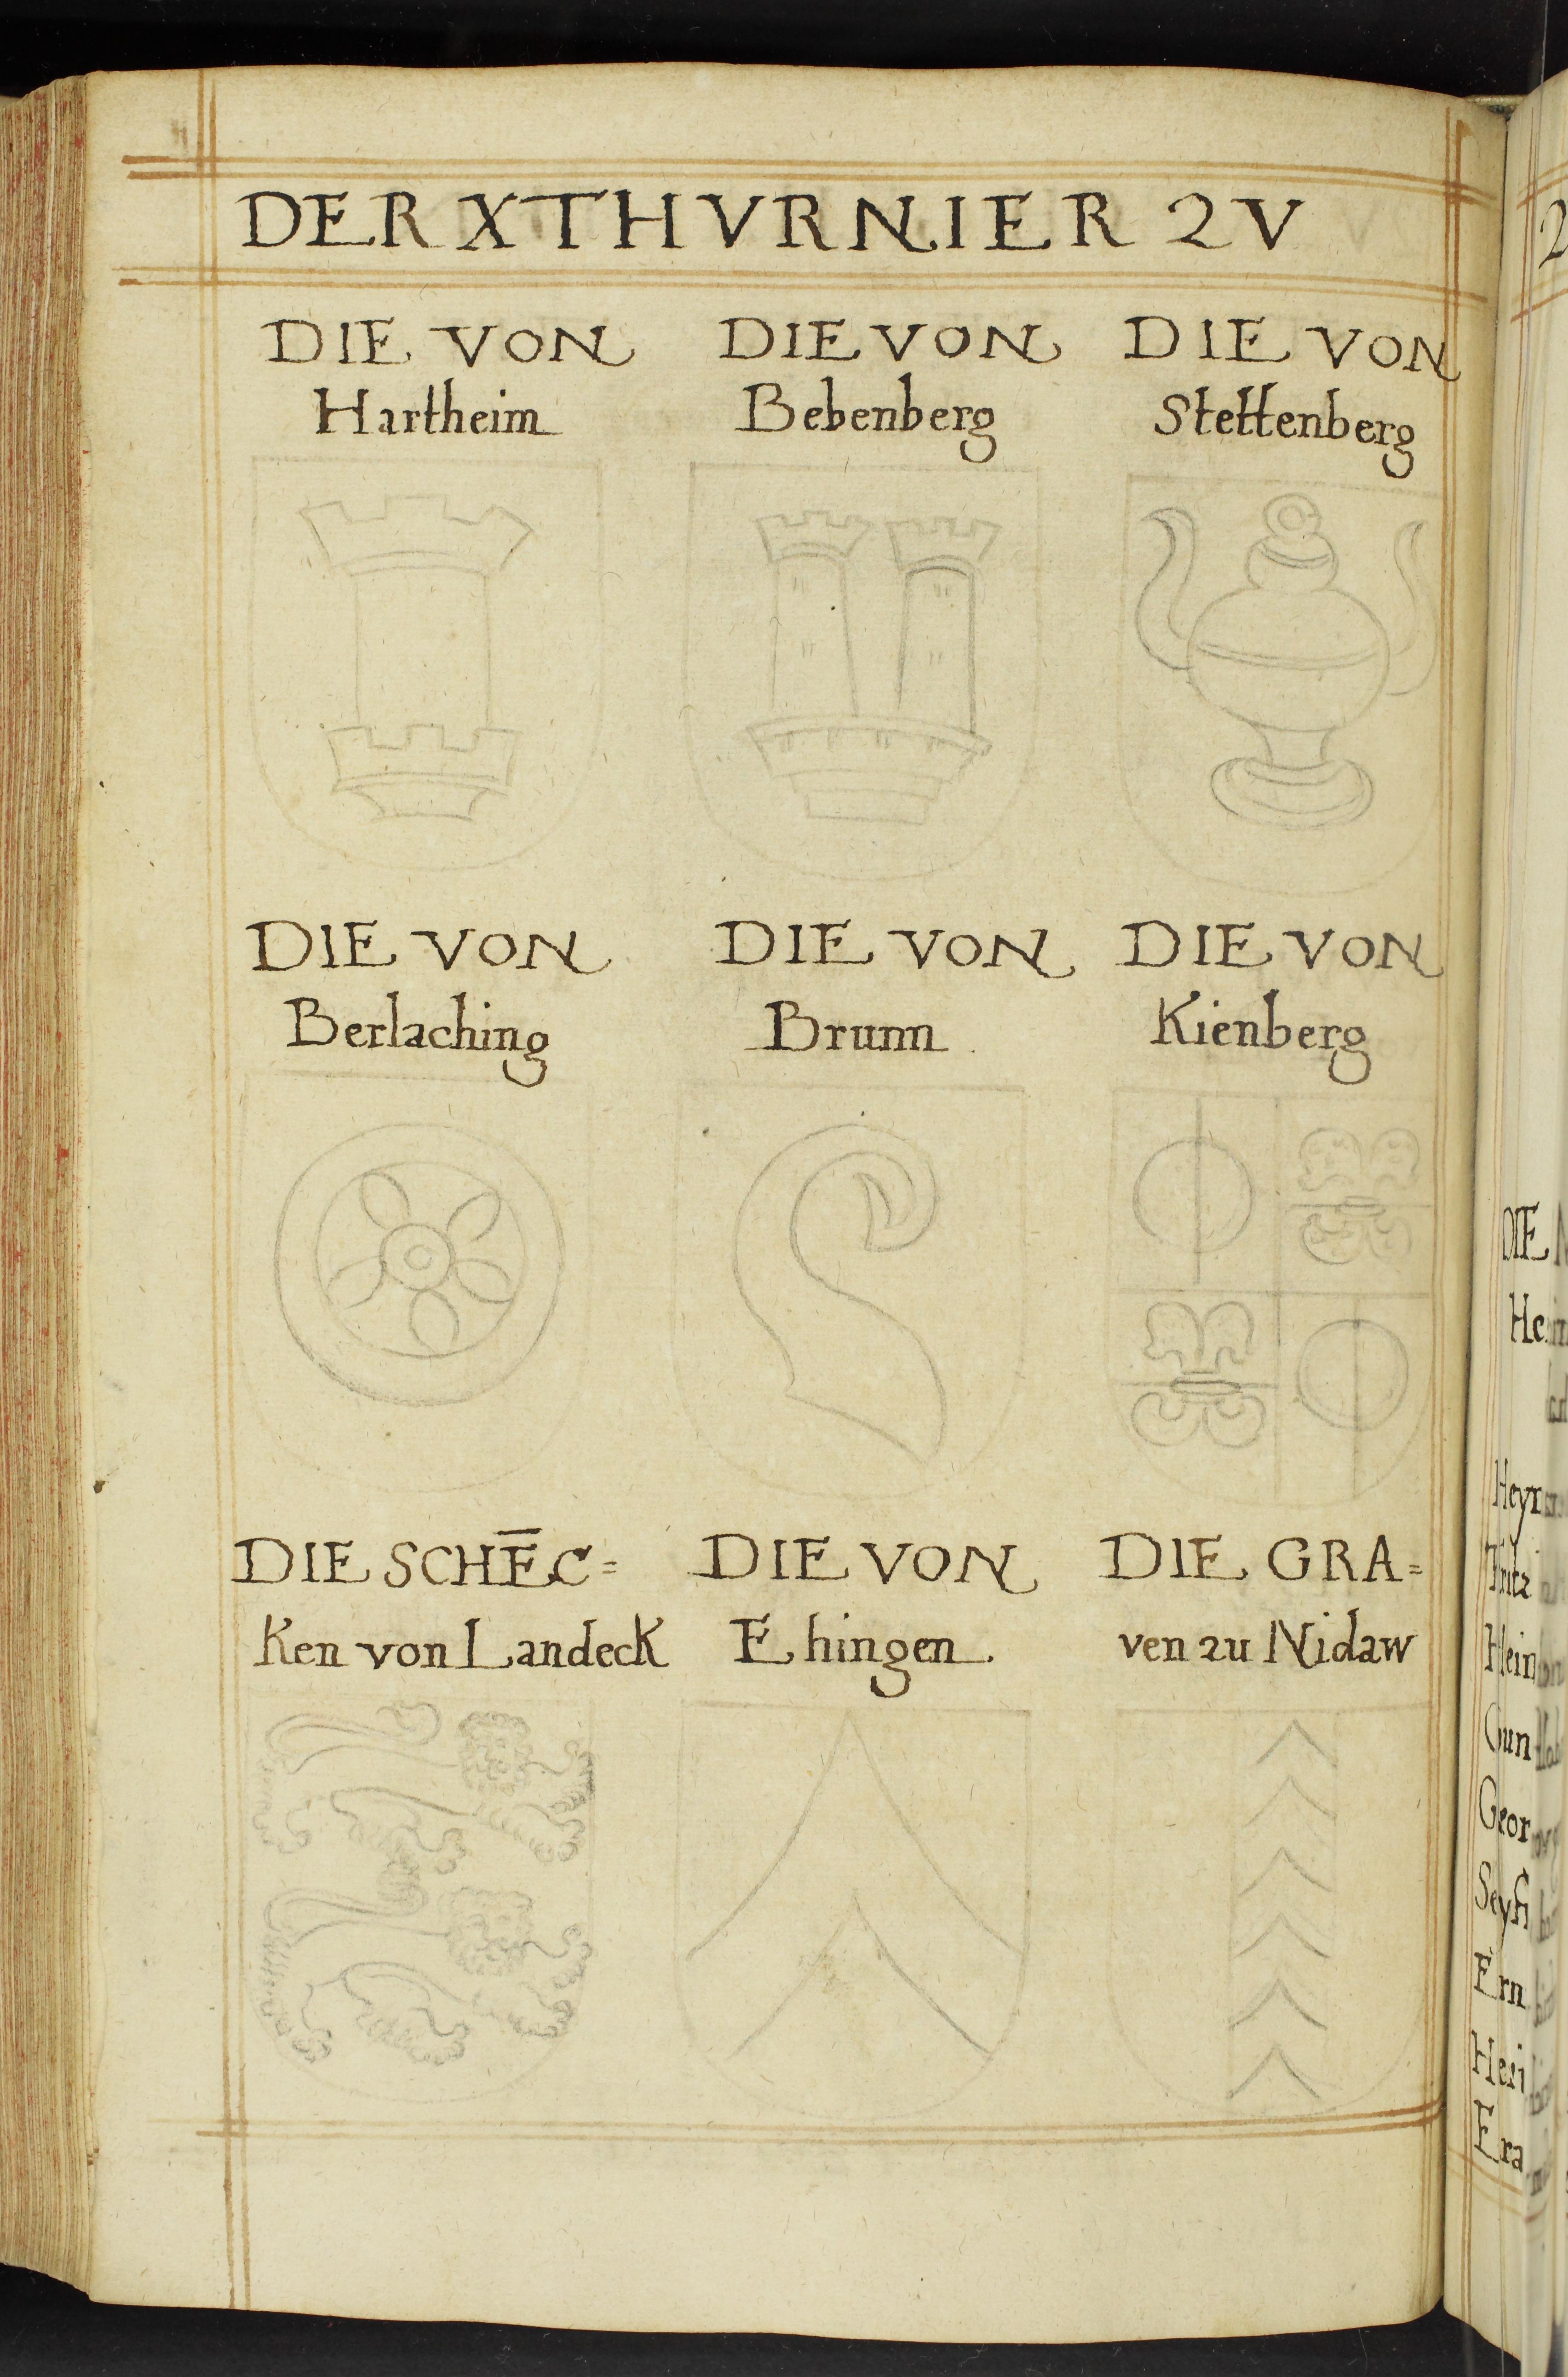 DER X THVRNIER ZV
DIE VON
Hartheim
DIE VON
Bebenberg
DIE VON
Stettenberg
DIE VON
Berlaching
DIE VON
Brunn
DIE VON
Kienberg
DIE SCHĒC=
Ken von LandecK
DIE VON
Ehingen.
DIE GRA=
ven zu Nidaw
DIE
Heyn
Fritz
Hein
Cun
Geor
Seyfr
Ern
Era